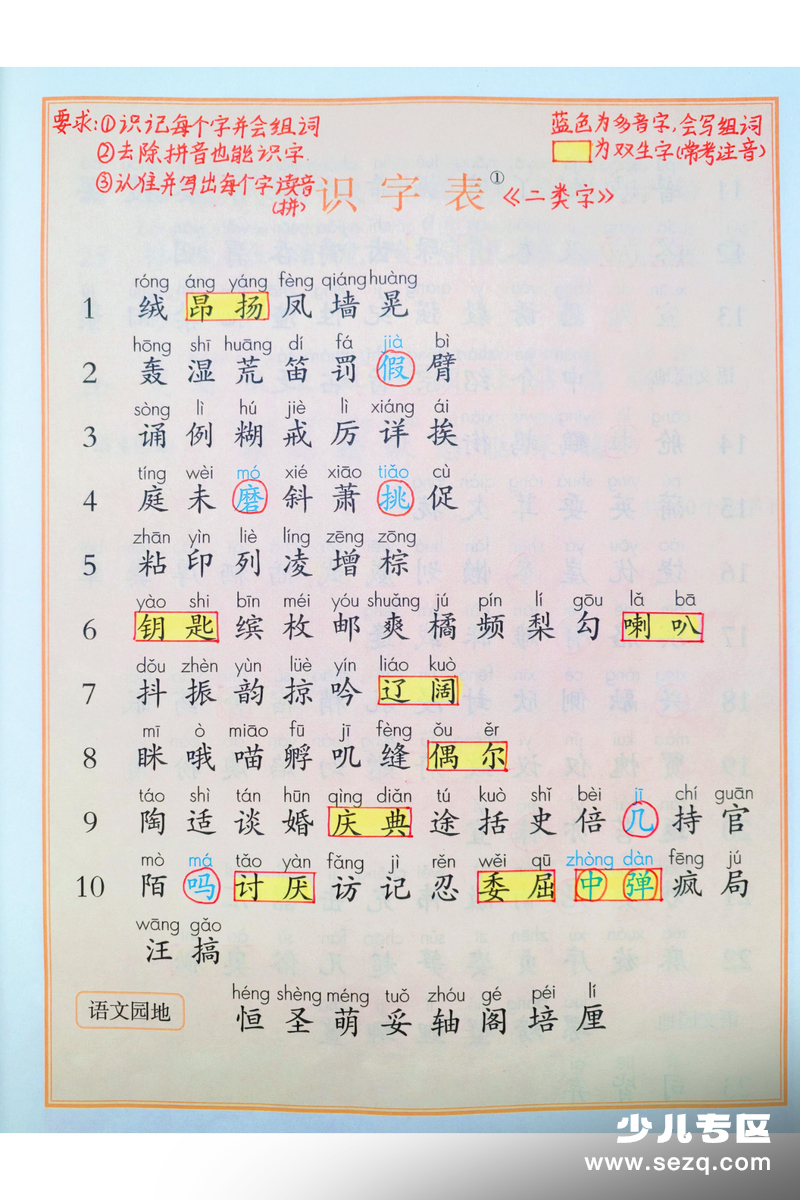 要求:①识记每个字并会组词
②去除拼音也能识字.
③认准并写出每个字读音(拼)
蓝色为多音字,会写组词
为双生字(常考注音)
识字表①《二类字》
róng áng yáng fèng qiáng huàng
1 绒 昂 扬 凤 墙 晃
hōng shī huāng dí fá jià bì
2 轰 湿 荒 笛 罚 假 臂
sòng lì hú jiè lì xiáng ái
3 诵 例 糊 戒 厉 详 挨
tíng wèi mó xié xiāo tiǎo cù
4 庭 未 磨 斜 萧 挑 促
zhān yìn liè líng zēng zōng
5 粘 印 列 凌 增 棕
yào shi bīn méi yóu shuǎng jú pín lí gōu lǎ bā
6 钥 匙 缤 枚 邮 爽 橘 频 梨 勾 喇 叭
dǒu zhèn yùn lüè yín liáo kuò
7 抖 振 韵 掠 吟 辽 阔
mī ò miāo fū jī fèng ǒu ěr
8 眯 哦 喵 孵 叽 缝 偶 尔
táo shì tán hūn qìng diǎn tú kuò shǐ bèi jī chí guān
9 陶 适 谈 婚 庆 典 途 括 史 倍 几 持 官
mò má tǎo yàn fǎng jì rěn wěi qū zhòng dàn fēng jú
10 陌 吗 讨 厌 访 记 忍 委 屈 中 弹 疯 局
wāng gǎo
汪 搞
héng shèng méng tuǒ zhóu gé péi lí
语文园地 恒 圣 萌 妥 轴 阁 培 厘
少儿专区
www.sezq.com